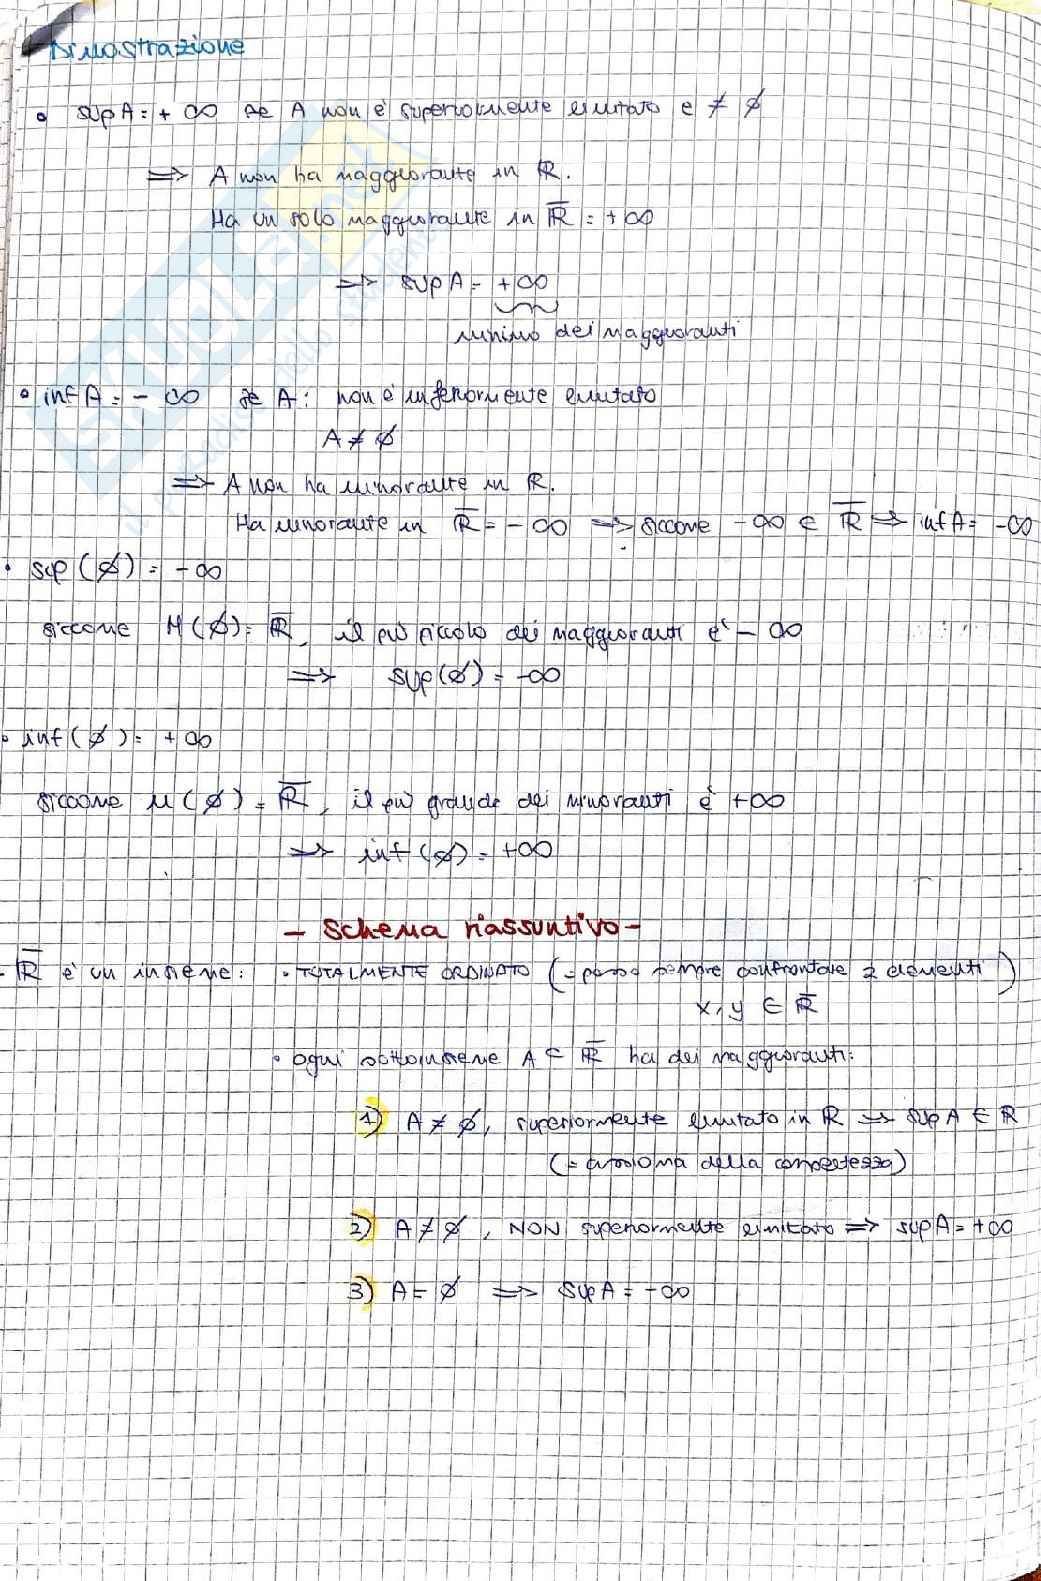 Dimostrazione
• sup A = + ∞ se A non è superiormente limitato e ≠ ∅
⇒ A non ha maggiorante in ℝ.
Ha un solo maggiorante in ℝ̅ = +∞
⇒ sup A = +∞
minimo dei maggioranti
• inf A = - ∞ se A: non è inferiormente limitato
A ≠ ∅
⇒ A non ha minorante in ℝ.
Ha minorante in ℝ̅ = -∞ ⇒ siccome -∞ ∈ ℝ̅ ⇒ inf A = -∞
• sup (∅) = -∞
siccome M(∅) = ℝ̅, il più piccolo dei maggioranti è - ∞
⇒ sup(∅) = -∞
• inf (∅) = +∞
siccome m(∅) = ℝ̅, il più grande dei minoranti è +∞
⇒ inf (∅) = +∞
- Schema riassuntivo -
- ℝ̅ è un insieme: • TOTALMENTE ORDINATO (= posso sempre confrontare 2 elementi)
x, y ∈ ℝ̅
• ogni sottoinsieme A ⊂ ℝ̅ ha dei maggioranti:
1) A ≠ ∅, superiormente limitato in ℝ ⇒ sup A ∈ ℝ
(= assioma della completezza)
2) A ≠ ∅, NON superiormente limitato ⇒ sup A = +∞
3) A = ∅ ⇒ sup A = -∞